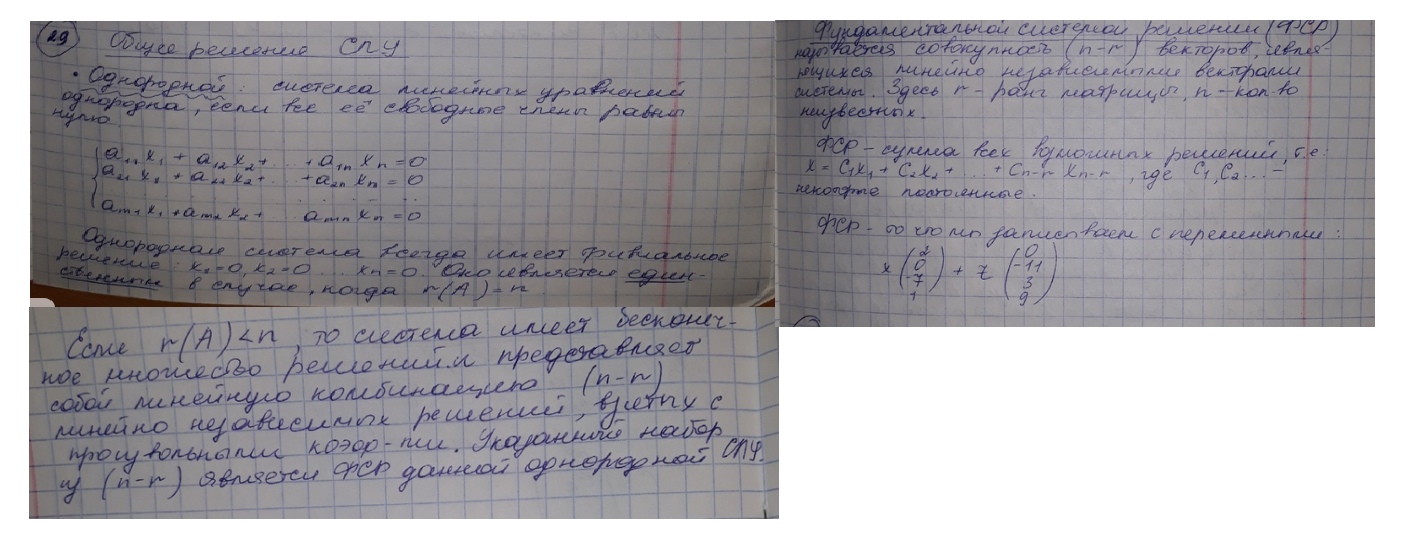 29 Общее решение СЛУ
• Однородной: система линейных уравнений
однородна, если все её свободные члены равны
нулю.
a₁₁x₁ + a₁₂x₂ + ... + a₁ₙxₙ = 0
a₂₁x₁ + a₂₂x₂ + ... + a₂ₙxₙ = 0
... ... ...
aₘ₁x₁ + aₘ₂x₂ + ... aₘₙxₙ = 0
Однородная система всегда имеет тривиальное
решение: x₁=0, x₂=0 ... xₙ=0. Оно является един-
ственным в случае, когда r(A)=n
Если r(A)<n, то система имеет бесконеч-
ное множество решений и представляет
собой линейную комбинацию (n-r)
линейно независимых решений, взятых с
произвольными коэф-ми. Указанный набор
из (n-r) является ФСР данной однородной СЛУ.
Фундаментальной системой решений (ФСР)
называется совокупность (n-r) векторов, явля-
ющихся линейно независимыми векторами
системы. Здесь r - ранг матрицы, n - кол-во
неизвестных.
ФСР - сумма всех возможных решений, т.е.:
x = C₁x₁ + C₂x₂ + ... + Cn-r xn-r, где C₁, C₂... -
некоторые постоянные.
ФСР - то что мы записываем с переменными:
x (2 0 -7 1) + z (0 -11 3 9)